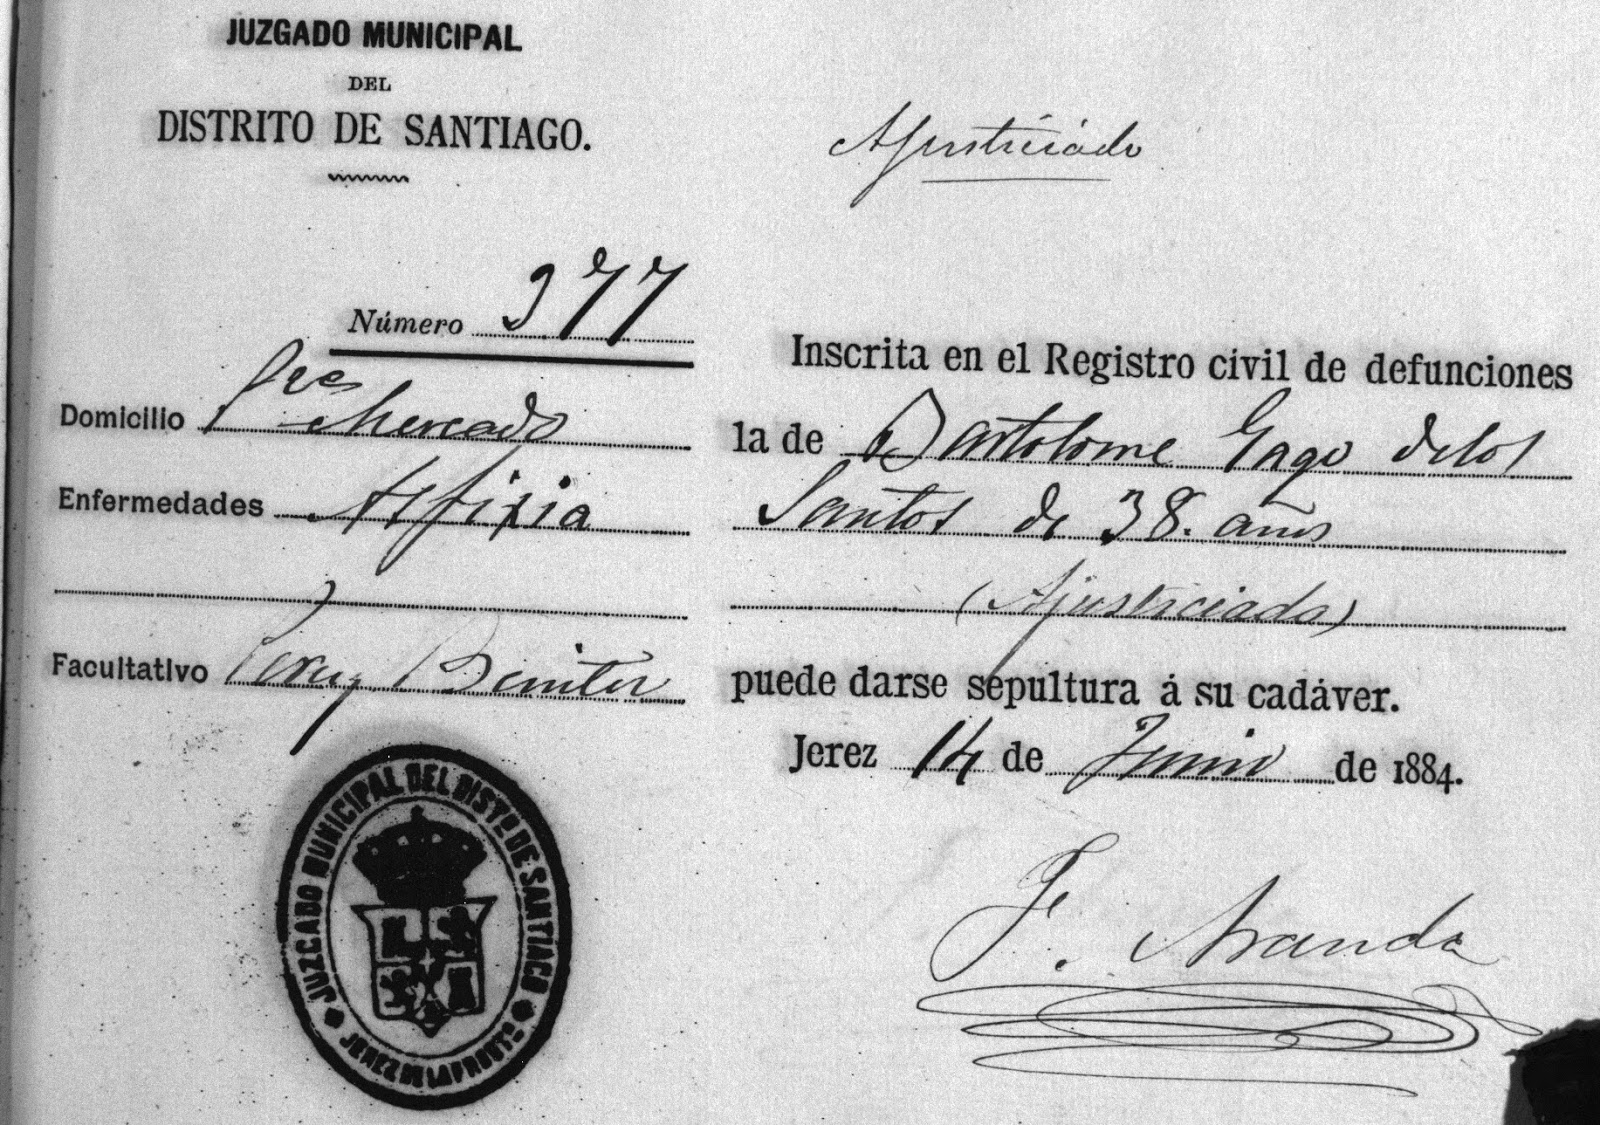 JUZGADO MUNICIPAL
DEL
DISTRITO DE SANTIAGO.
Ajusticiado
Número 377
Domicilio Pza Mercado
Enfermedades Asfixia
Facultativo Benitez
Inscrita en el Registro civil de defunciones
la de Bartolome Gago delos
Santos de 38. años
(Ajusticiado)
puede darse sepultura á su cadáver.
Jerez 14 de Junio de 1884.
F. Aranda
JUZGADO MUNICIPAL DEL DISTO DE SANTIAGO
JEREZ DE LA FRONTERA